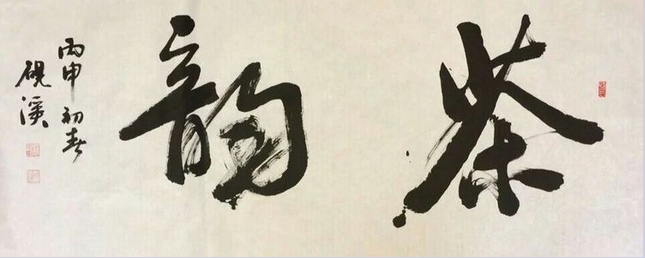 茶韵
丙申初春
砚溪